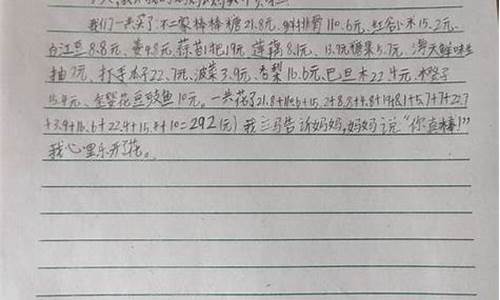 我们一共买了:不二家棒棒糖21.8元、
排骨110.6元、红台小木15.2元、
白江豆8.8元、姜4.8元、蒜苗1把19元、莲藕8.1元、
糖果5.7元、
抽7元、打手瓜子22.7元、菠菜3.9元、香梨16.6元、巴旦木22.4元、
15.4元、金婴花豆豉鱼10元。一共花了21.8+110.6+15.2+8.8+4.8+19+8.1+5.7+7+22.7
+3.9+16.6+22.4+15.4+10=292(元)我立马告诉妈妈,妈妈说“你真棒!”
我心里乐开了花。